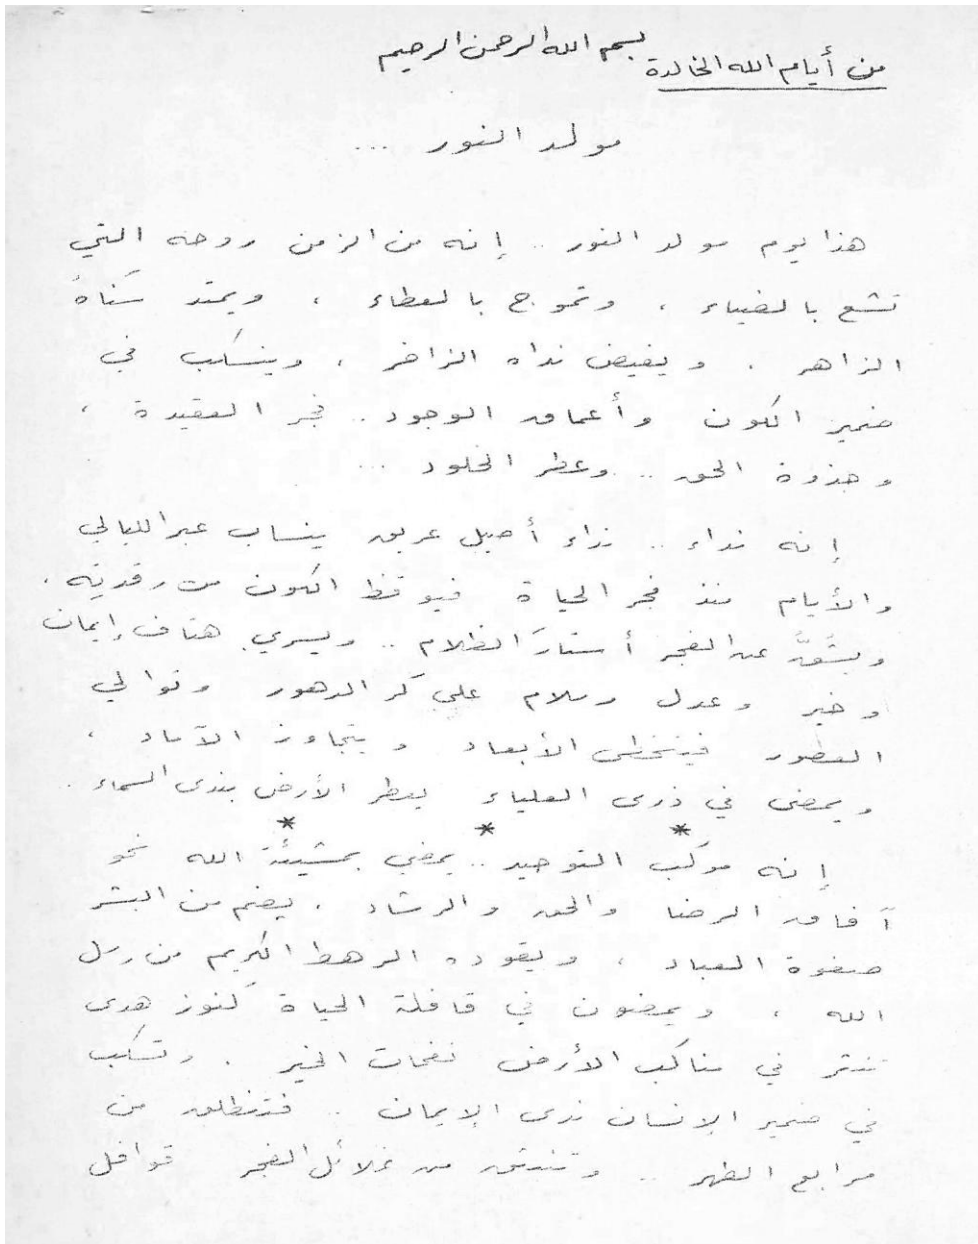 بسم الله الرحمن الرحيم
من أيام الله الخالدة
مولد النور ...
هذا يوم مولد النور .. إنه من الزمن روحه التي
تشع بالضياء ، وتموج بالعطاء ، ويمتد سَناهُ
الزاهر . ويفيض نداه الزاخر ، وينسكب في
ضمير الكون وأعماق الوجود .. فجر العقيدة ،
وجذوة الحق .. وعطر الخلود ...
إنه نداء .. نداء أصيل عريق ينساب عبر الليالي
والأيام منذ فجر الحياة فيوقظ الكون من رقدته .
ويشقُّ عن الفجر أستارَ الظلام .. ويسري هتاف إيمان
وخير وعدل وسلام على كر الدهور وتوالي
العصور فيتخطى الأبعاد ويتجاوز الآماد ،
ويمضي في ذرى العلياء يعطر الأرض بندى السماء .
* * *
إنه موكب التوحيد .. يمضي بمشيئة الله نحو
آفاق الرضا والحق والرشاد . يضم من البشر
صفوة العباد ، ويقوده الرهط الكريم من رسل
الله ، ويمضون في قافلة الحياة كنوز هدى
تنثر في مناكب الأرض نفحات الخير . وتسكب
في ضمير الإنسان ندى الإيمان .. فتنطلق من
مرابع الطهر .. وتنبثق من غلائل الفجر قوافل